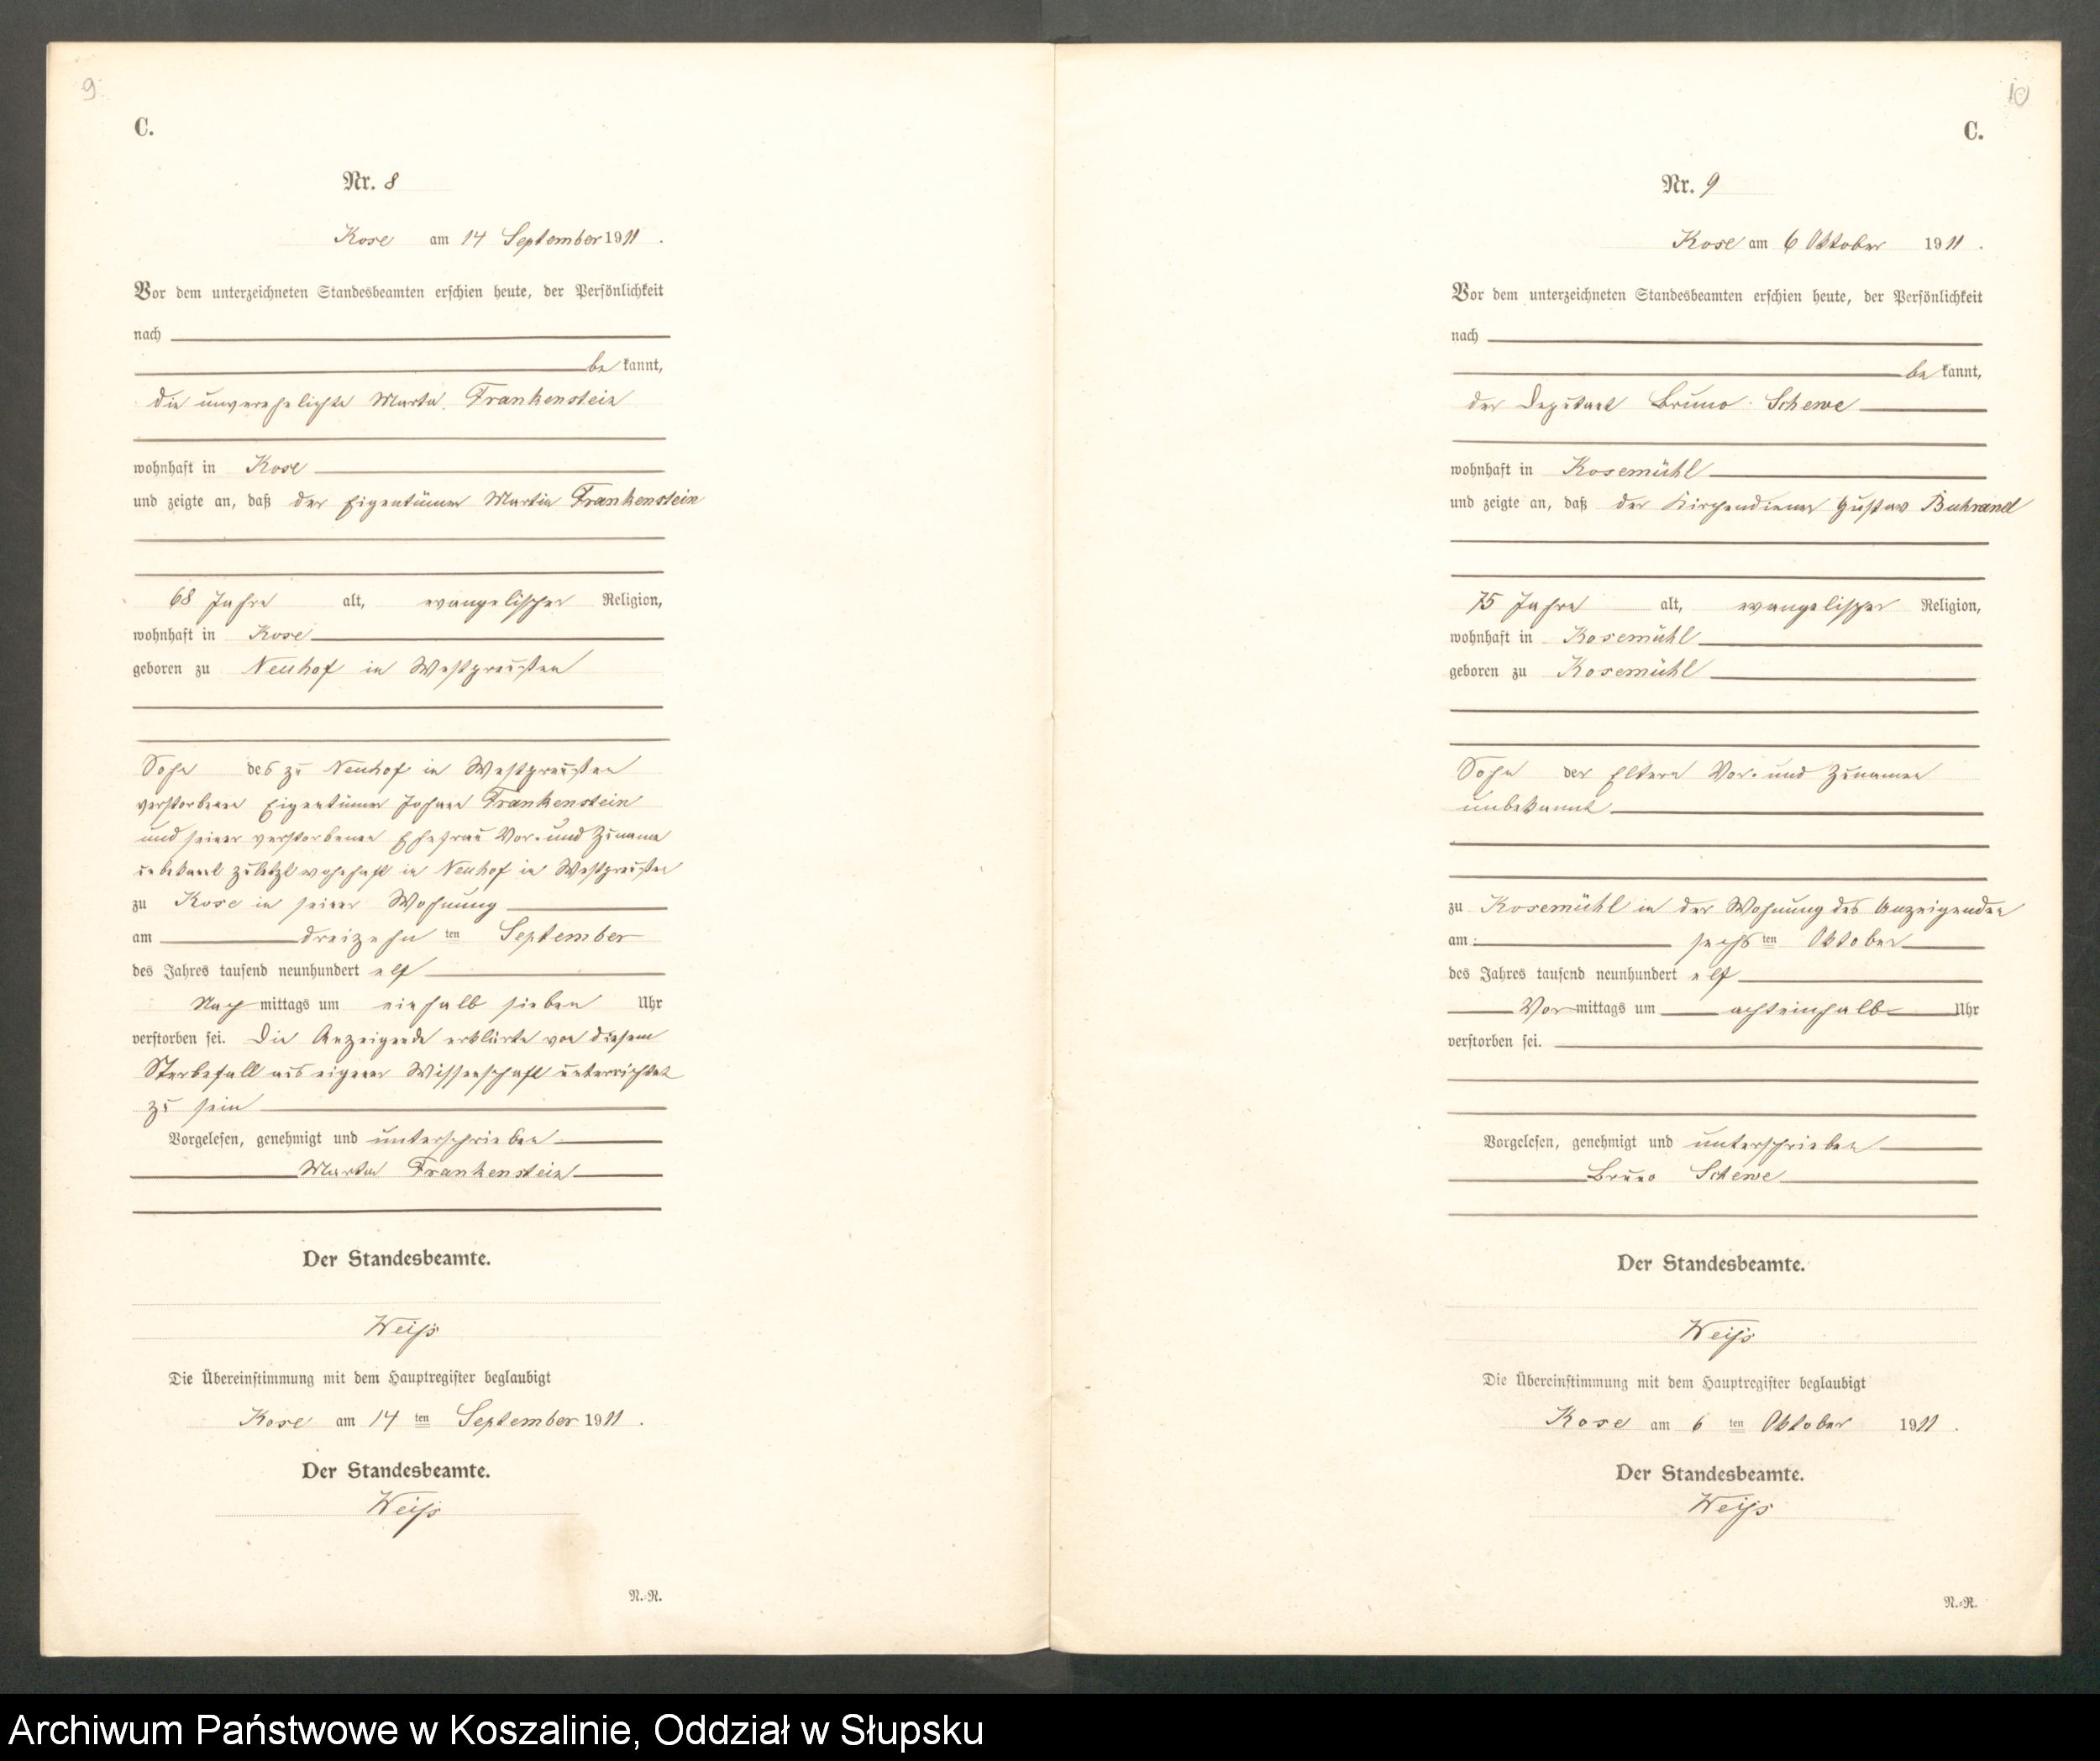 9
C.
Nr. 8
Kose am 14 September 1911.
Vor dem unterzeichneten Standesbeamten erschien heute, der Persönlichkeit
nach
bekannt,
die unverehelichte Marta Frankenstein
wohnhaft in Kose
und zeigte an, daß der Eigentümer Martin Frankenstein
68 Jahre alt, evangelischer Religion,
wohnhaft in Kose
geboren zu Neuhof in Westpreußen
Sohn des zu Neuhof in Westpreußen
verstorbenen Eigentümer Johann Frankenstein
und seiner verstorbenen Ehefrau Vor- und Zuname
unbekannt zuletzt wohnhaft in Neuhof in Westpreußen
zu Kose in seiner Wohnung
am dreizehn ten September
des Jahres tausend neunhundert elf
Nachmittags um einhalb sieben Uhr
verstorben sei. Die Anzeigende erklärte von diesem
Sterbefall aus eigener Wissenschaft unterrichtet
zu sein
Vorgelesen, genehmigt und unterschrieben
Marta Frankenstein
Der Standesbeamte.
Weiß
Die Übereinstimmung mit dem Hauptregister beglaubigt
Kose am 14 ten September 1911.
Der Standesbeamte.
Weiß
N.-R.
10
C.
Nr. 9
Kose am 6 Oktober 1911.
Vor dem unterzeichneten Standesbeamten erschien heute, der Persönlichkeit
nach
bekannt,
der Deputant Bruno Schewe
wohnhaft in Kosemühl
und zeigte an, daß der Kirchendiener Gustav Buhrand
75 Jahre alt, evangelischer Religion,
wohnhaft in Kosemühl
geboren zu Kosemühl
Sohn der Eltern Vor- und Zunamen
unbekannt
zu Kosemühl in der Wohnung des Anzeigenden
am sechs ten Oktober
des Jahres tausend neunhundert elf
Vormittags um achteinhalb Uhr
verstorben sei.
Vorgelesen, genehmigt und unterschrieben
Bruno Schewe
Der Standesbeamte.
Weiß
Die Übereinstimmung mit dem Hauptregister beglaubigt
Kose am 6 ten Oktober 1911.
Der Standesbeamte.
Weiß
N.-R.
Archiwum Państwowe w Koszalinie, Oddział w Słupsku